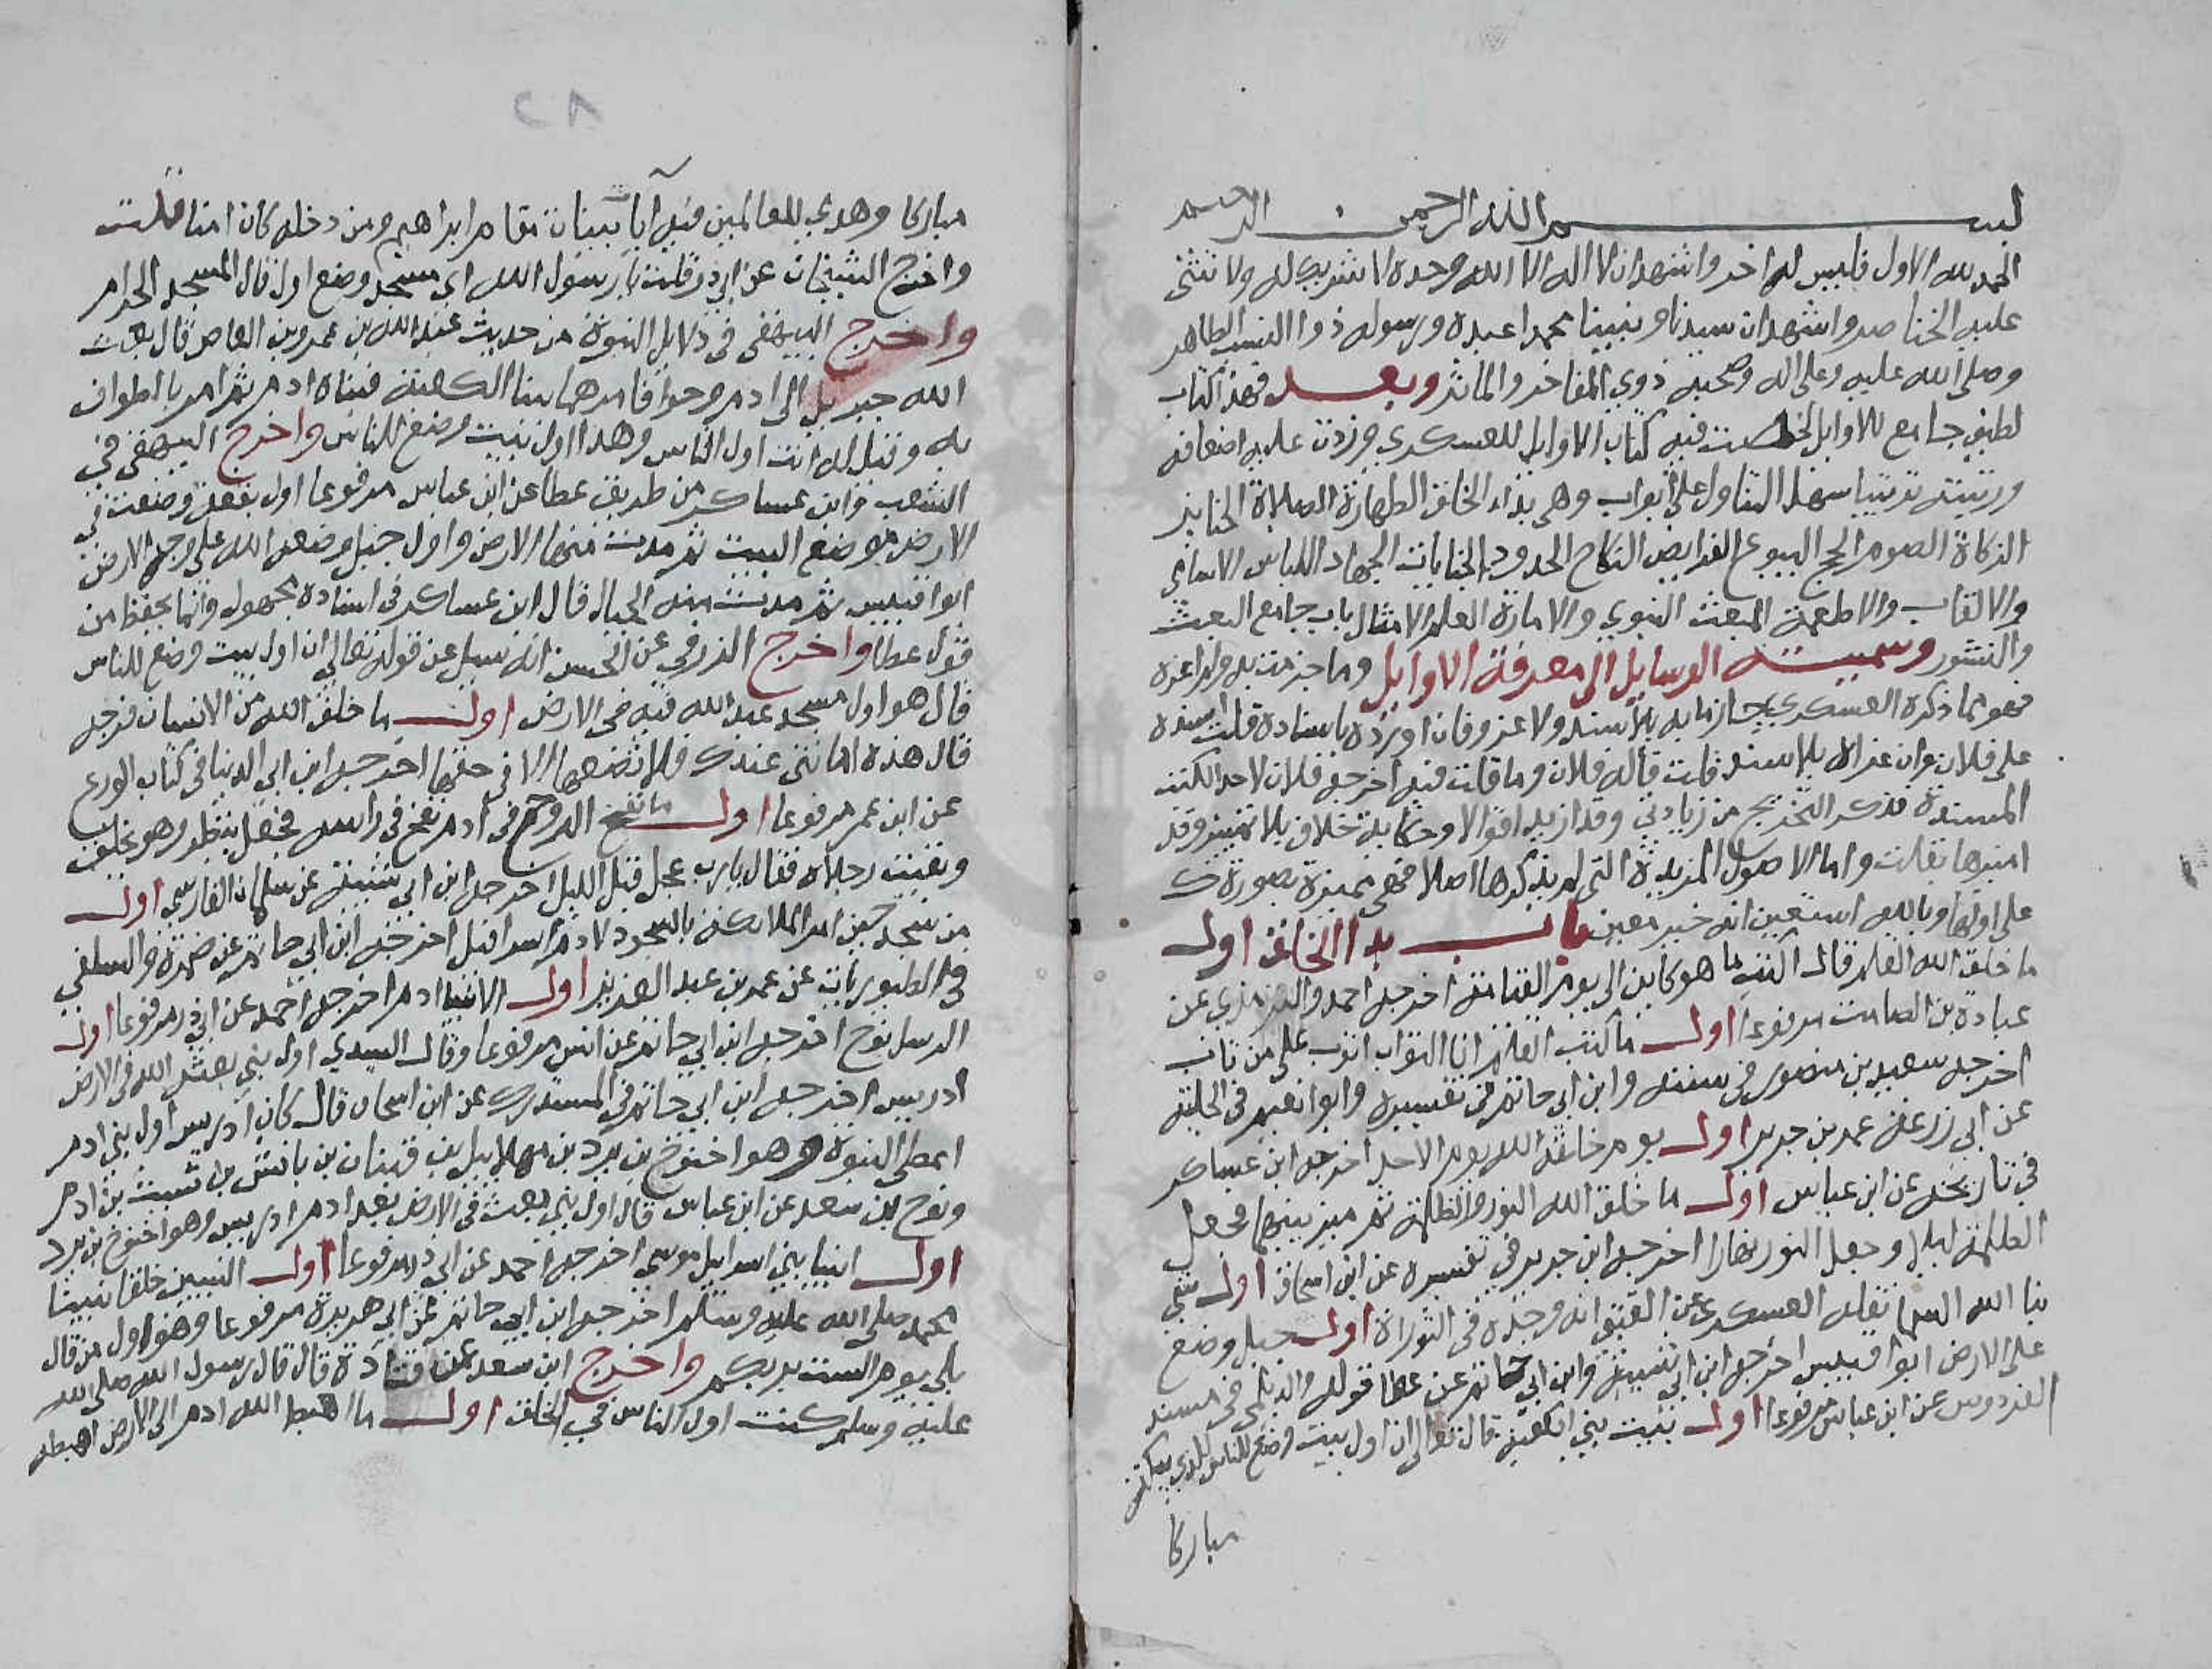 بسم الله الرحمن الرحيم
الحمد لله الاول فليس له اخر واشهد ان لا اله الا الله وحده لا شريك له ولا تثني
عليه الخناصر واشهد ان سيدنا ونبينا محمدا عبده ورسوله ذوا النسب الطاهر
وصلى الله عليه وعلى اله وصحبه ذوي المفاخر والماثر وبعد فهذا كتاب
لطيف جامع للاوايل لخصت فيه كتاب الاوايل للعسكري وزدت عليه اضعافه
ورتبته ترتيبا سهل التناول على ابواب وهي بداء الخلق الطهارة الصلاة الجنايز
الزكاة الصوم الحج البيوع الفرايض النكاح الحدود الجنايات الجهاد اللباس الاسامي
والالقاب والاطعمة المبعث النبوي والامارة العلم الامثال باب جامع البعث
والنشور وسميته الوسايل الى معرفة الاوايل وما جزمت به ولم اعزه
فهو مما ذكره العسكري جازما به بلا سند ولا عزو فان اورده باسناده قلت اسنده
على فلان وان عزاه بلا سند قلت قاله فلان وما قلت فيه اخرجه فلان لاحد الكتب
المسندة فذكر التخريج من زيادتي وقد ازيد اقوالا وحكاية خلاف بلا تمييز وقد
اميزها بقلت واما الاصول المزيدة التي لم يذكرها اصلا فهي مميزة بصورة ك
على اولها وبالله استعين انه خير معين باب بدا الخلق اول
ما خلق الله القلم قال اكتب ما هو كاين الى يوم القيامة اخرجه احمد والترمذي عن
عبادة بن الصامت مرفوعا اول ما كتب القلم انا التواب اتوب على من تاب
اخرجه سعيد بن منصور في سننه وابن ابي حاتم في تفسيره وابوا نعيم في الحلية
عن ابي زرعة عمر بن جرير اول يوم خلقه الله يوم الاحد اخرجه ابن عساكر
في تاريخه عن ابن عباس اول ما خلق الله النور والظلمة ثم ميز بينهما فجعل
الظلمة ليلا وجعل النور نهارا اخرجه ابن جرير في تفسيره عن ابن اسحاق اول شي
بنا الله السما نقله العسكري عن القتبي انه وجده في التوراة اول جبل وضع
على الارض ابوا قبيس اخرجه ابن ابي شيبة وابن ابي حاتم عن عطا قوله والديلمي في مسند
الفردوس عن ابن عباس مرفوعا اول بيت بني الكعبة قال تعالى ان اول بيت وضع للناس للذي ببكة
مباركا
مباركا وهدي للعالمين فيه ايات بينات مقام ابراهيم ومن دخله كان امنا قلت
واخرج الشيخان عن ابي ذر قلت يا رسول الله اي مسجد وضع اول قال المسجد الحرام
واخرج البيهقي في دلايل النبوة من حديث عبد الله بن عمرو بن العاص قال بعث
الله جبريل الى ادم وحوا فامرهما ببنا الكعبة فبناه ادم ثم امر بالطواف
به وقيل له انت اول الناس وهذا اول بيت وضع للناس واخرج البيهقي في
الشعب وابن عساكر من طريق عطا عن ابن عباس مرفوعا اول بقعة وضعت في
الارض موضع البيت ثم مدت منها الارض واول جبل وضعه الله على وجه الارض
ابوا قبيس ثم مدت منه الجبال قال ابن عساكر في اسناده مجهول وانما يحفظ من
قول عطا واخرج الذرقي عن الحسن انه سيل عن قوله تعالى ان اول بيت وضع للناس
قال هو اول مسجد عبد الله فيه في الارض اول ما خلق الله من الانسان فرجه
قال هذه امانتي عندك فلا تضعها الا في حقها اخرجه ابن ابي الدنيا في كتاب الورع
عن ابن عمر مرفوعا اول ما نفخ الروح في ادم نفخ في راسه فجعل ينظر وهو يخلق
وبقيت رجلاه فقال يا رب عجل قبل الليل اخرجه ابن ابي شيبة عن سلمان الفارسي اول
من سجد حين امر الملايكة بالسجود لادم اسرافيل اخرجه ابن ابي حاتم عن ضمرة والسلفي
في الطيوريات عن عمر بن عبد العزيز اول الانبيا ادم اخرجه احمد عن ابي ذر مرفوعا اول
الرسل نوح اخرجه ابن ابي حاتم عن انس مرفوعا وقال السدي اول نبي بعثه الله في الارض
ادريس اخرجه ابن ابي حاتم في المستدرك عن ابن اسحاق قال كان ادريس اول بني ادم
اعطي النبوة وهو اخنوخ بن يرد بن مهلاييل بن قينان بن يانش بن شيث بن ادم
ونوح بن سعد عن ابن عباس قال اول نبي بعث في الارض بعد ادم ادريس وهو اخنوخ بن يرد
اول انبيا بني اسراييل موسى اخرجه احمد عن ابي ذر مرفوعا اول النبيين خلقا نبينا
محمد صلى الله عليه وسلم اخرجه ابن ابي حاتم عن ابي هريرة مرفوعا وهو اول من قال
بلى يوم الست بربكم واخرج ابن سعد عن قتادة قال قال رسول الله صلى الله
عليه وسلم كنت اول الناس في الخلق اول ما اهبط الله ادم الى الارض اهبطه